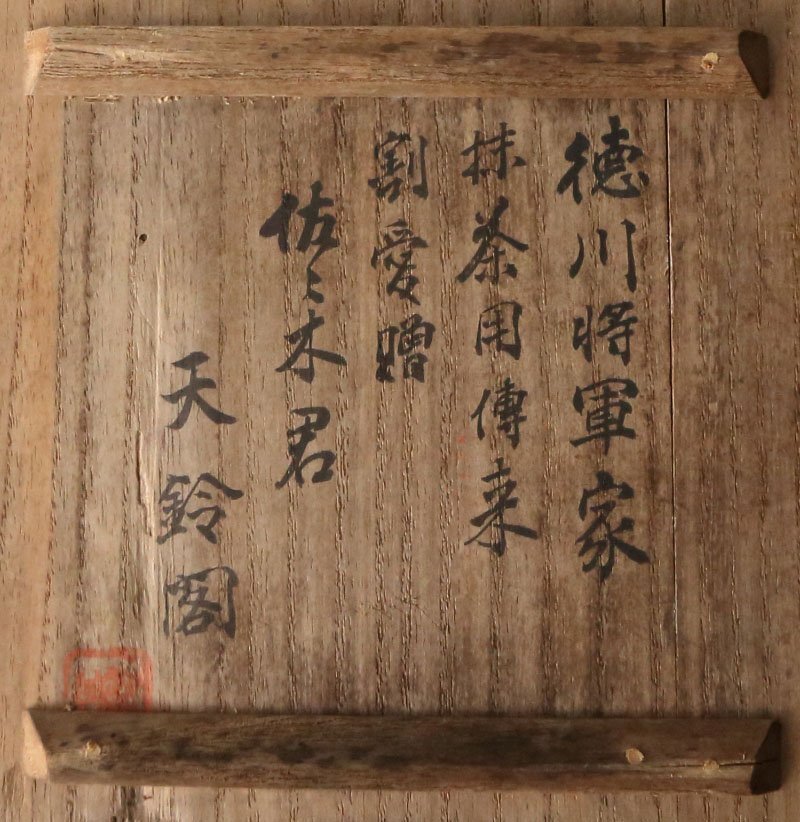 徳川将軍家
抹茶用傳来
割愛贈
佐々木君
天鈴閣